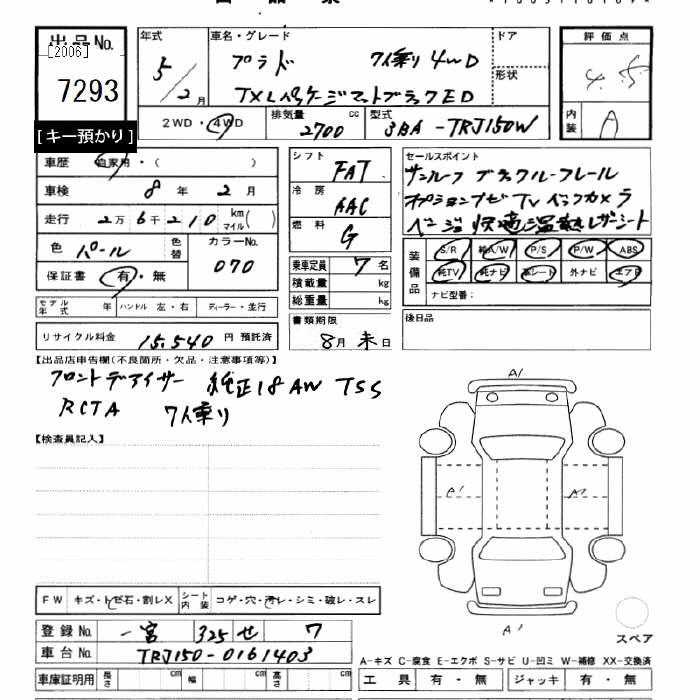 出品No.
[2006]
7293
[キー預かり]
年式 車名・グレード ドア
5/2月 プラド 7人乗り 4WD 形状
TXLパッケージマットブラックED
2WD・4WD 排気量 2700 cc 型式 3BA-TRJ150W
評価点
4.5
内装 A
車歴 自家用・( )
車検 8年2月
走行 2万6千210 km(マイル)
色 パール 色替 カラーNo. 070
保証書 有・無
モデル年式 年 ハンドル 左・右 ディーラー・並行
リサイクル料金 15,540 円 預託済
シフト FAT
冷房 AAC
燃料 G
乗車定員 7名
積載量 kg
総重量 kg
書類期限
8月末日
セールスポイント
サンルーフ ブラックルーフレール
オプションナビ TV バックカメラ
ベージュ 快適温熱レザーシート
装備品 S/R 純A/W P/S P/W ABS
純TV 純ナビ 革シート 外ナビ エアB
ナビ型番:
後日品
【出品店申告欄(不良箇所・欠品・注意事項等)】
フロントデアイサー 純正18AW TSS
RCTA 7人乗り
【検査員記入】
A1
A1 A1
A1
スペア
FW キズ・トビ石・割レX シート内装 コゲ・穴・汚レ・シミ・破レ・スレ
登録No. 一宮 325 せ 7
車台No. TRJ150-0161403
車庫証明用 長さ cm 幅 cm 高さ cm
A-キズ C-腐食 E-エクボ S-サビ U-凹ミ W-補修 XX-交換済
工具 有・無 ジャッキ 有・無